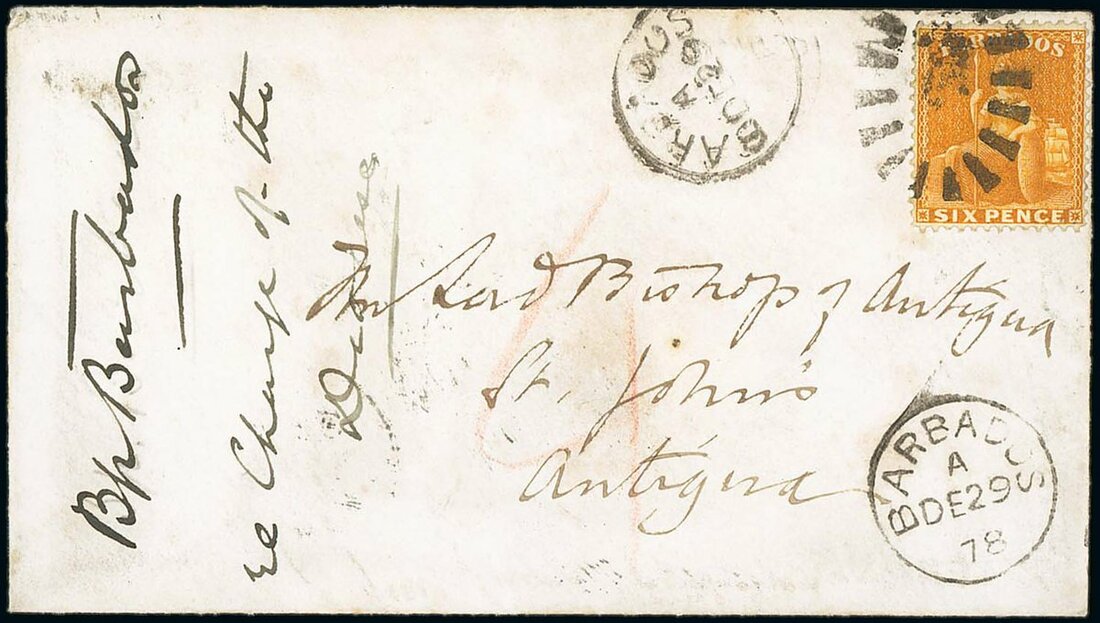 BARBADOS
SIX PENCE
BARBADOS
A
DE 29
The Lord Bishop of Antigua
St. John's
Antigua
BARBADOS
A
DE 29
78
Bp Barbados
re Charge of the
Diocese